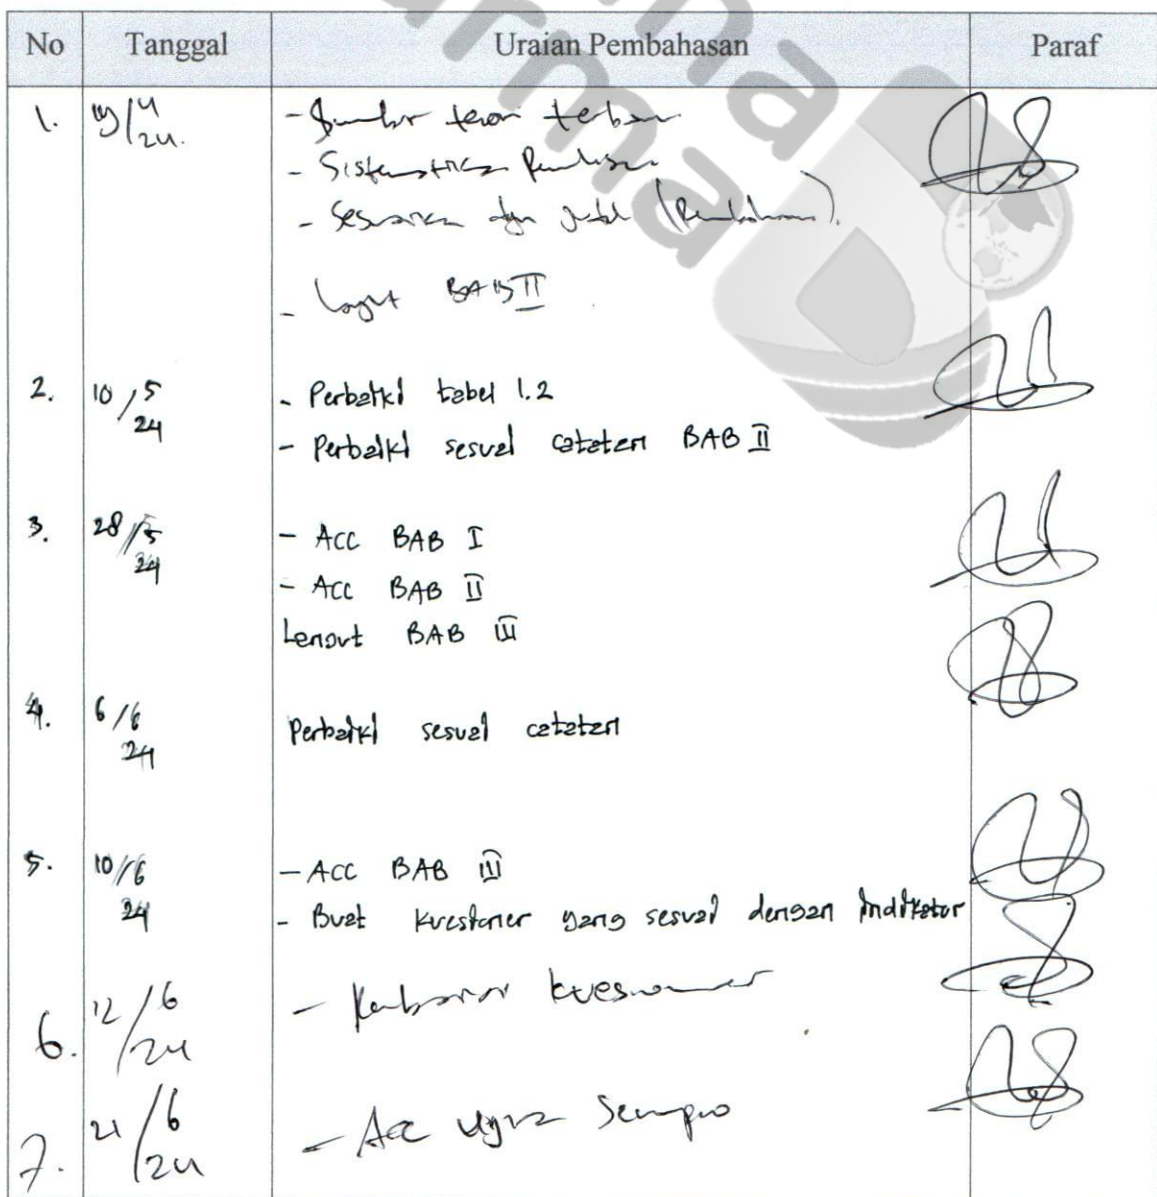 No Tanggal Uraian Pembahasan Paraf
1. 19/4/24. - Sumber teori terbaru
- Sistematika Penulisan
- Sesuaikan dgn judul (Pembahasan).
- Lanjut BAB II
2. 10/5/24 - Perbaiki tabel 1.2
- Perbaiki sesuai catatan BAB II
3. 28/5/24 - ACC BAB I
- ACC BAB II
Lanjut BAB III
4. 6/6/24 Perbaiki sesuai catatan
5. 10/6/24 - ACC BAB III
- Buat kuesioner yang sesuai dengan indikator
6. 12/6/24 - kuesioner
7. 21/6/24 - Acc Sempro